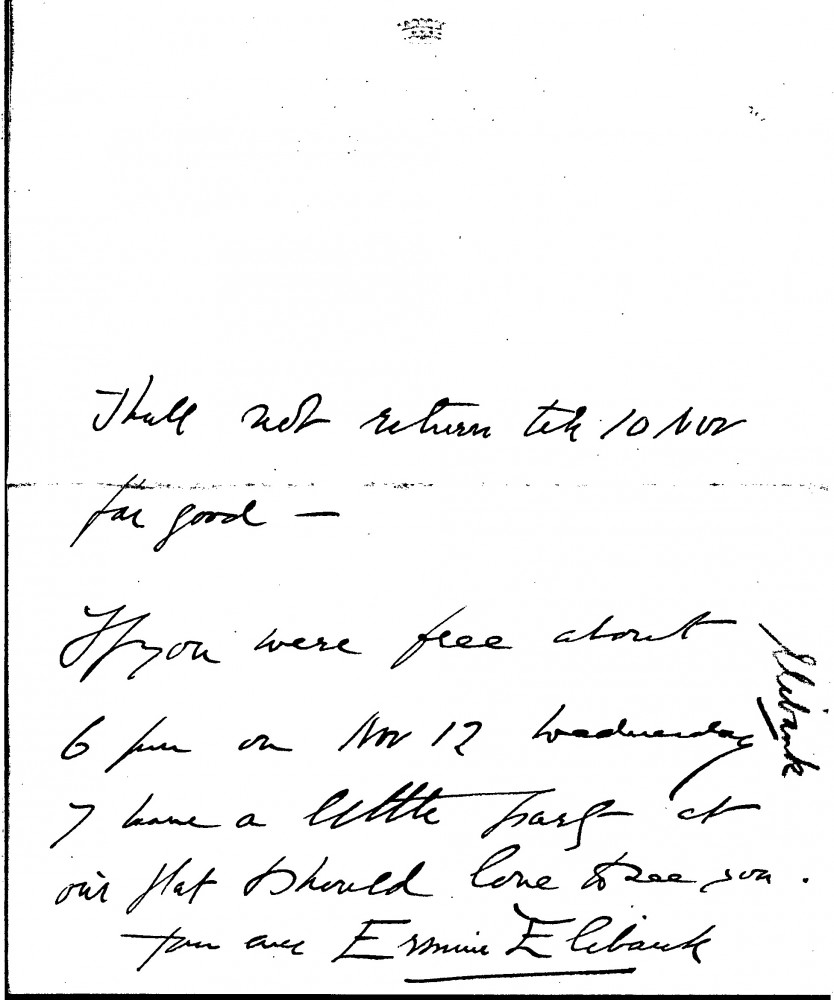 I shall not return till 10 Nov
for good —
If you were free about
6 pm on Nov 12 Wednesday
I have a little party at
our flat & should love to see you.
Yours ever Ermine Elibank
Elibank